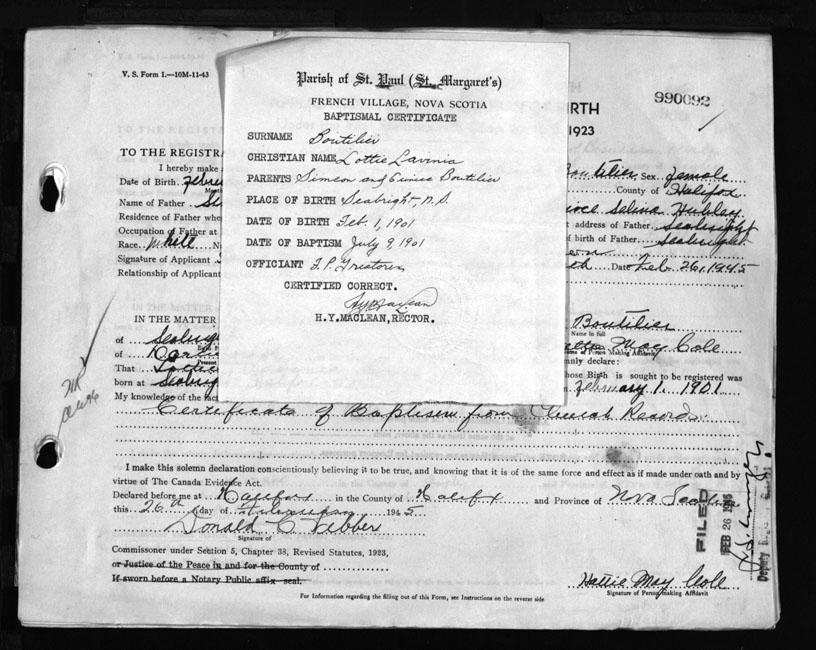 V. S. Form 1.—10M-11-43
Parish of St. Paul (St. Margaret's)
FRENCH VILLAGE, NOVA SCOTIA
BAPTISMAL CERTIFICATE
SURNAME Boutilier
CHRISTIAN NAME Lottie Lavinia
PARENTS Simeon and Eunice Boutilier
PLACE OF BIRTH Seabright, N.S.
DATE OF BIRTH Feb. 1, 1901
DATE OF BAPTISM July 9, 1901
OFFICIANT
CERTIFIED CORRECT.
H.Y. Maclean
H.Y.MACLEAN,RECTOR.
BIRTH
990092
1923
TO THE REGISTRA
I hereby make a
Boutilier Sex. female
Date of Birth. Febru
County of Halifax
Name of Father
Selina Hubley
Residence of Father whe
address of Father. Seabright
Occupation of Father at
of birth of Father. Seabright
Race. White N
Signature of Applicant
Date Feb. 26, 1945
Relationship of Applicant
IN THE MATTER
Boutilier
Name in full
of Seabrig
May Cole
of
Name of Person Making Affidavit
Present
mnly declare:
That Lottie
whose Birth is sought to be registered was
born at Seabrig
February 1. 1901
My knowledge of the fact
Certificate of Baptism from Church Records.
I make this solemn declaration conscientiously believing it to be true, and knowing that it is of the same force and effect as if made under oath and by
virtue of The Canada Evidence Act.
Declared before me at Halifax in the County of Halifax and Province of Nova Scotia
this 26th day of February 1945
Donald C Webber
Signature of
Commissioner under Section 5, Chapter 38, Revised Statutes, 1923,
or Justice of the Peace in and for the County of
If sworn before a Notary Public affix seal.
Hattie May Cole
Signature of Person making Affidavit
For Information regarding the filling out of this Form, see Instructions on the reverse side
FILED
FEB 26 1945
Deputy